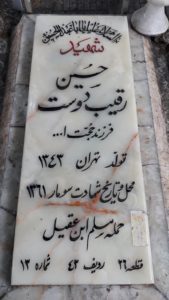 شهید
حسن
رقیب دوست
فرزند حجت ا...
تولد تهران ۱۳۴۳
محل و تاریخ شهادت سومار ۱۳۶۱
حمله مسلم ابن عقیل
قطعه ۲۶ ردیف ۴۳ شماره ۱۳